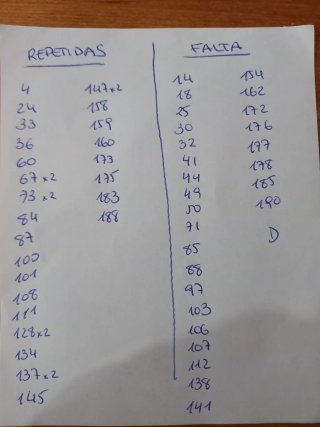 REPETIDAS
4
24
33
36
60
67 x2
73 x2
84
87
100
101
108
111
128x2
134
137x2
145
147x2
158
159
160
173
175
183
188
FALTA
14
18
25
30
32
41
44
49
50
71
85
88
97
103
106
107
112
138
141
154
162
172
176
177
178
185
190
D